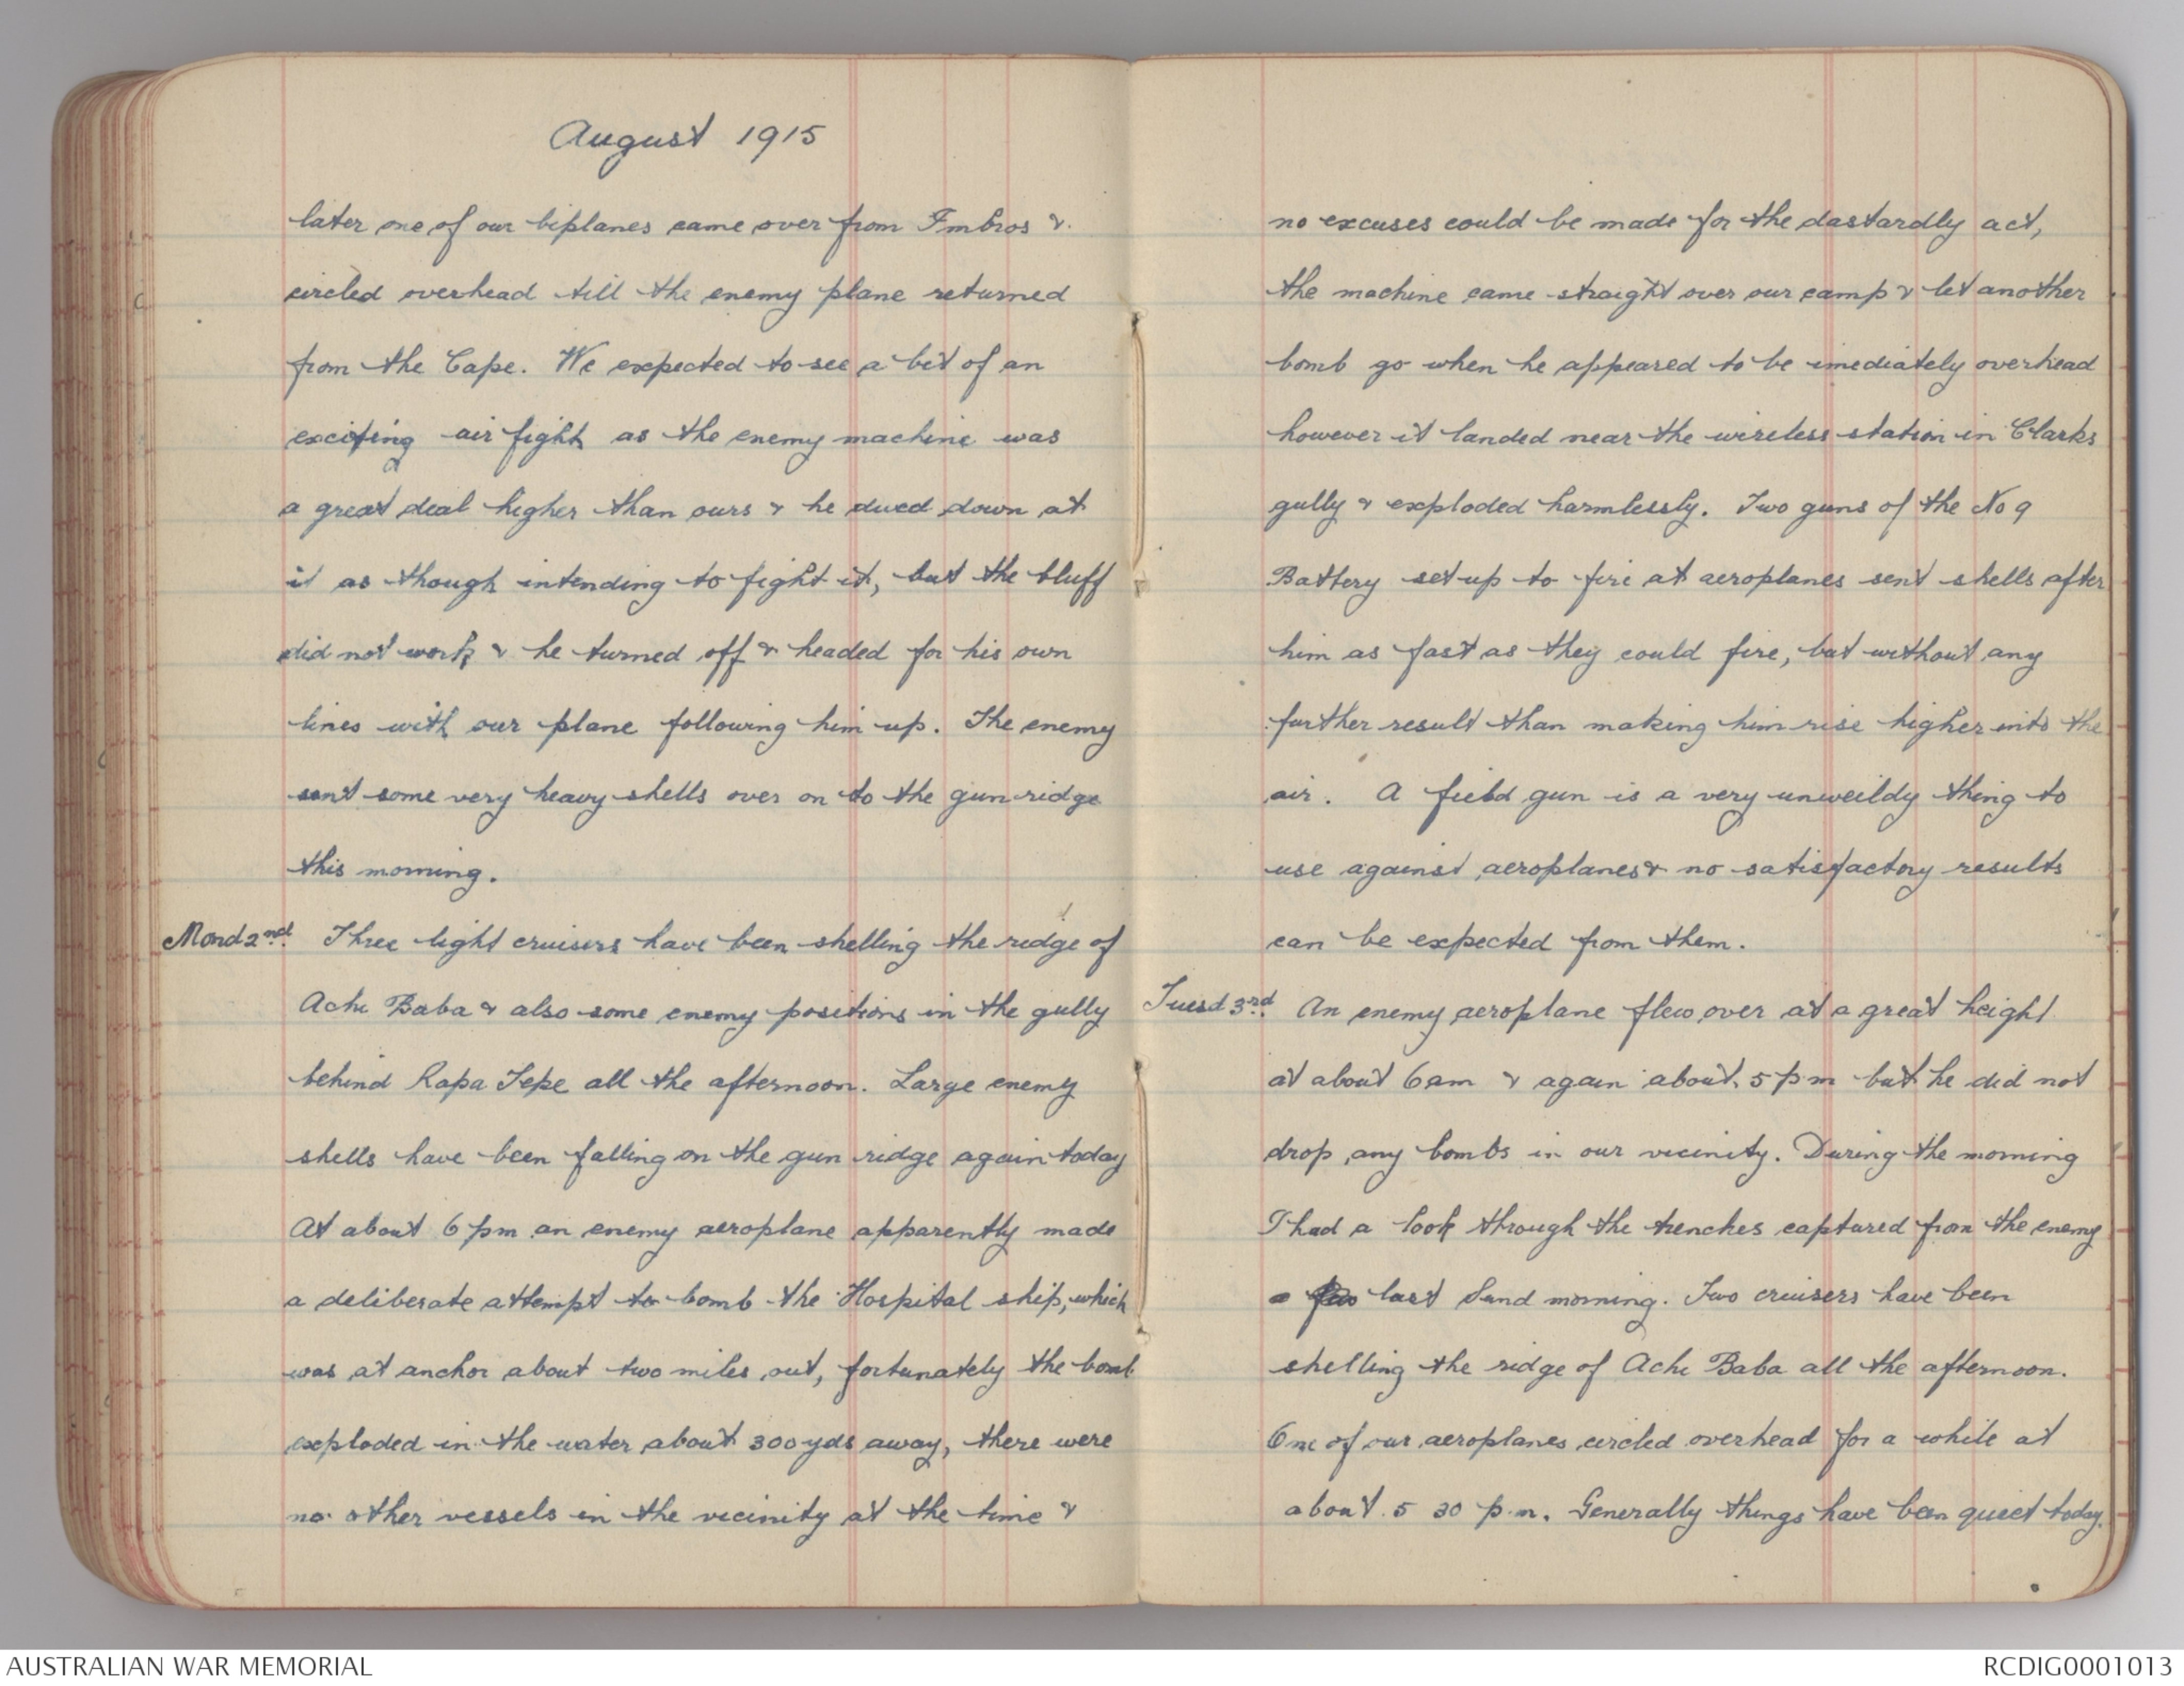 August 1915
later one of our biplanes came over from Imbros &
circled overhead till the enemy plane returned
from the Cape. We expected to see a bit of an
exciting air fight as the enemy machine was
a great deal higher than ours & he dived down at
it as though intending to fight it, but the bluff
did not work & he turned off & headed for his own
lines with our plane following him up. The enemy
sent some very heavy shells over on to the gun ridge
this morning.
Mond 2nd. Three light cruisers have been shelling the ridge of
Achi Baba & also some enemy positions in the gully
behind Kapa Tepe all the afternoon. Large enemy
shells have been falling on the gun ridge again today
At about 6 pm an enemy aeroplane apparently made
a deliberate attempt to bomb the Hospital ship, which
was at anchor about two miles out, fortunately the bomb
exploded in the water about 300 yds away, there were
no other vessels in the vicinity at the time &
no excuses could be made for the dastardly act,
the machine came straight over our camp & let another
bomb go when he appeared to be imediately overhead
however it landed near the wireless station in Clarks
gully & exploded harmlessly. Two guns of the No 9
Battery set up to fire at aeroplanes sent shells after
him as fast as they could fire, but without any
further result than making him rise higher into the
air. A field gun is a very unweildy thing to
use against aeroplanes & no satisfactory results
can be expected from them.
Tuesd 3rd. An enemy aeroplane flew over at a great height
at about 6 am & again about 5 pm but he did not
drop any bombs in our vicinity. During the morning
I had a look through the trenches captured from the enemy
a few last Sund morning. Two cruisers have been
shelling the ridge of Achi Baba all the afternoon.
One of our aeroplanes circled overhead for a while at
about 5 30 p.m. Generally things have been quiet today.
AUSTRALIAN WAR MEMORIAL
RCDIG0001013